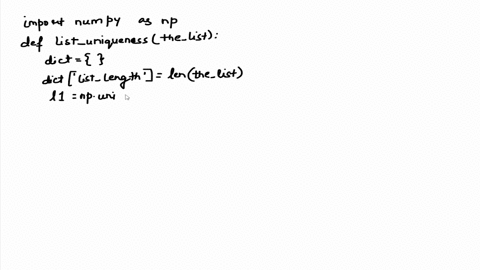 import numpy as np
def list_uniqueness(the_list):
dict = { }
dict['list_length'] = len(the_list)
l1 = np.uni